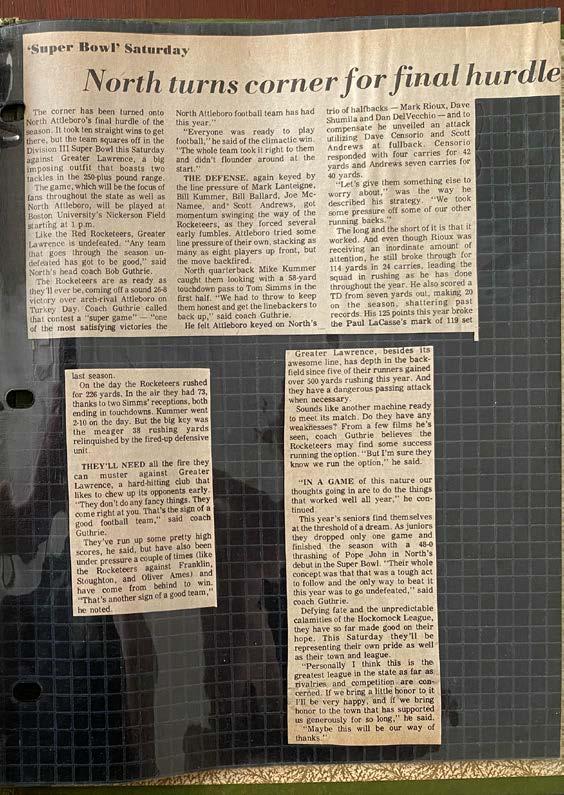 'Super Bowl' Saturday
North turns corner for final hurdle
The corner has been turned onto
North Attleboro's final hurdle of the
season. It took ten straight wins to get
there, but the team squares off in the
Division III Super Bowl this Saturday
against Greater Lawrence, a big
imposing outfit that boasts two
tackles in the 250-plus pound range.
The game, which will be the focus of
fans throughout the state as well as
North Attleboro, will be played at
Boston University's Nickerson Field
starting at 1 p.m.
Like the Red Rocketeers, Greater
Lawrence is undefeated. "Any team
that goes through the season un-
defeated has got to be good," said
North's head coach Bob Guthrie.
The Rocketeers are as ready as
they'll ever be, coming off a sound 26-8
victory over arch-rival Attleboro on
Turkey Day. Coach Guthrie called
that contest a "super game" — "one
of the most satisfying victories the
North Attleboro football team has had
this year."
"Everyone was ready to play
football," he said of the climactic win.
"The whole team took it right to them
and didn't flounder around at the
start."
THE DEFENSE, again keyed by
the line pressure of Mark Lanteigne,
Bill Kummer, Bill Ballard, Joe Mc-
Namee, and Scott Andrews, got
momentum swinging the way of the
Rocketeers, as they forced several
early fumbles. Attleboro tried some
line pressure of their own, stacking as
many as eight players up front, but
the move backfired.
North quarterback Mike Kummer
caught them looking with a 58-yard
touchdown pass to Tom Simms in the
first half. "We had to throw to keep
them honest and get the linebackers to
back up," said coach Guthrie.
He felt Attleboro keyed on North's
trio of halfbacks — Mark Rioux, Dave
Shumila and Dan DelVecchio — and to
compensate he unveiled an attack
utilizing Dave Censorio and Scott
Andrews at fullback. Censorio
responded with four carries for 42
yards and Andrews seven carries for
40 yards.
"Let's give them something else to
worry about," was the way he
described his strategy. "We took
some pressure off some of our other
running backs."
The long and the short of it is that it
worked. And even though Rioux was
receiving an inordinate amount of
attention, he still broke through for
114 yards in 24 carries, leading the
squad in rushing as he has done
throughout the year. He also scored a
TD from seven yards out, making 20
on the season, shattering past
records. His 125 points this year broke
the Paul LaCasse's mark of 119 set
last season.
On the day the Rocketeers rushed
for 226 yards. In the air they had 73,
thanks to two Simms' receptions, both
ending in touchdowns. Kummer went
2-10 on the day. But the big key was
the meager 38 rushing yards
relinquished by the fired-up defensive
unit.
THEY'LL NEED all the fire they
can muster against Greater
Lawrence, a hard-hitting club that
likes to chew up its opponents early.
"They don't do any fancy things. They
come right at you. That's the sign of a
good football team," said coach
Guthrie.
They've run up some pretty high
scores, he said, but have also been
under pressure a couple of times (like
the Rocketeers against Franklin,
Stoughton, and Oliver Ames) and
have come from behind to win.
"That's another sign of a good team,"
he noted.
Greater Lawrence, besides its
awesome line, has depth in the back-
field since five of their runners gained
over 500 yards rushing this year. And
they have a dangerous passing attack
when necessary.
Sounds like another machine ready
to meet its match. Do they have any
weaknesses? From a few films he's
seen, coach Guthrie believes the
Rocketeers may find some success
running the option. "But I'm sure they
know we run the option," he said.
"IN A GAME of this nature our
thoughts going in are to do the things
that worked well all year," he con-
tinued.
This year's seniors find themselves
at the threshold of a dream. As juniors
they dropped only one game and
finished the season with a 48-0
thrashing of Pope John in North's
debut in the Super Bowl. "Their whole
concept was that that was a tough act
to follow and the only way to beat it
this year was to go undefeated," said
coach Guthrie.
Defying fate and the unpredictable
calamities of the Hockomock League,
they have so far made good on their
hope. This Saturday they'll be
representing their own pride as well
as their town and league.
"Personally I think this is the
greatest league in the state as far as
rivalries and competition are con-
cerned. If we bring a little honor to it
I'll be very happy, and if we bring
honor to the town that has supported
us generously for so long," he said.
"Maybe this will be our way of
thanks."